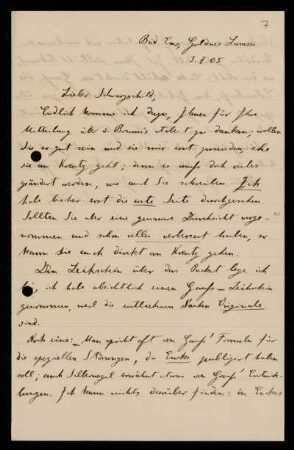 7
Bad Ems, Goldnes Lamm
3.7.05
Lieber Schwarzschild,
Endlich komme ich dazu, Ihnen für Ihre
Mitteilung über
zu danken; wollen
Sie so gut sein und sie mir erst zusenden ehe
sie an Krantz geht; denn es muss doch vieles
geändert werden, wie auch Sie schreiben. Ich
habe bisher erst die erste Seite durchgesehen.
Sollten Sie aber eine genauere Durchsicht vorge-
nommen und schon alles verbessert haben, so
kann Sie auch direkt an Krantz gehen.
Den Leihschein über das Packet lege ich
bei, ich habe absichtlich einen Gauss-Leihschein
genommen, weil die
Sachen Originale
sind.
Noch eins: Man spricht oft von Gauss' Formeln für
die speziellen Störungen, die Encke publiziert haben
soll; auch
erwähnt etwas von Gauss' Entwick-
lungen. Ich kann nichts darüber finden; in Enckes